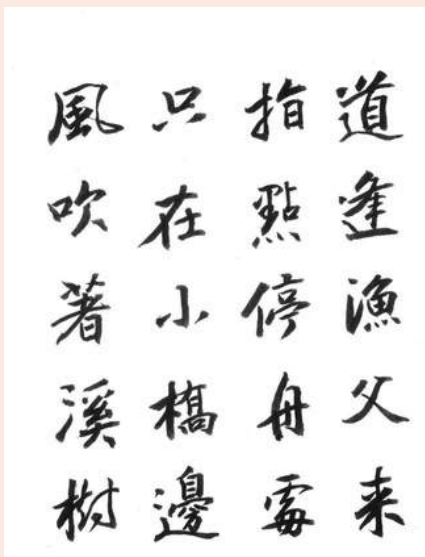 道逢漁父来
指點停舟處
只在小橋邊
風吹著溪樹